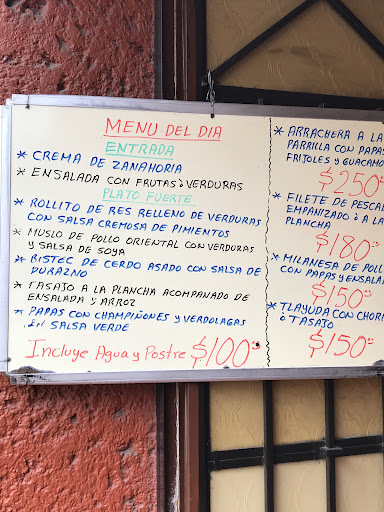 MENU DEL DIA
ENTRADA
* CREMA DE ZANAHORIA
* ENSALADA CON FRUTAS ò VERDURAS
PLATO FUERTE
* ROLLITO DE RES RELLENO DE VERDURAS
CON SALSA CREMOSA DE PIMIENTOS
* MUSLO DE POLLO ORIENTAL CON VERDURAS
Y SALSA DE SOYA
* BISTEC DE CERDO ASADO CON SALSA DE
DURAZNO
* TASAJO A LA PLANCHA ACOMPANADO DE
ENSALADA Y ARROZ
* PAPAS CON CHAMPIÑONES Y VERDOLAGAS
EN SALSA VERDE
Incluye Agua y Postre $100
* ARRACHERA A LA
PARRILLA CON PAPAS
FRIJOLES Y GUACAMO
$250
* FILETE DE PESCA
EMPANIZADO ò A LA
PLANCHA
$180
* MILANESA DE POLL
CON PAPAS Y ENSALA
$150
* TLAYUDA CON CHOR
ò TASAJO
$150